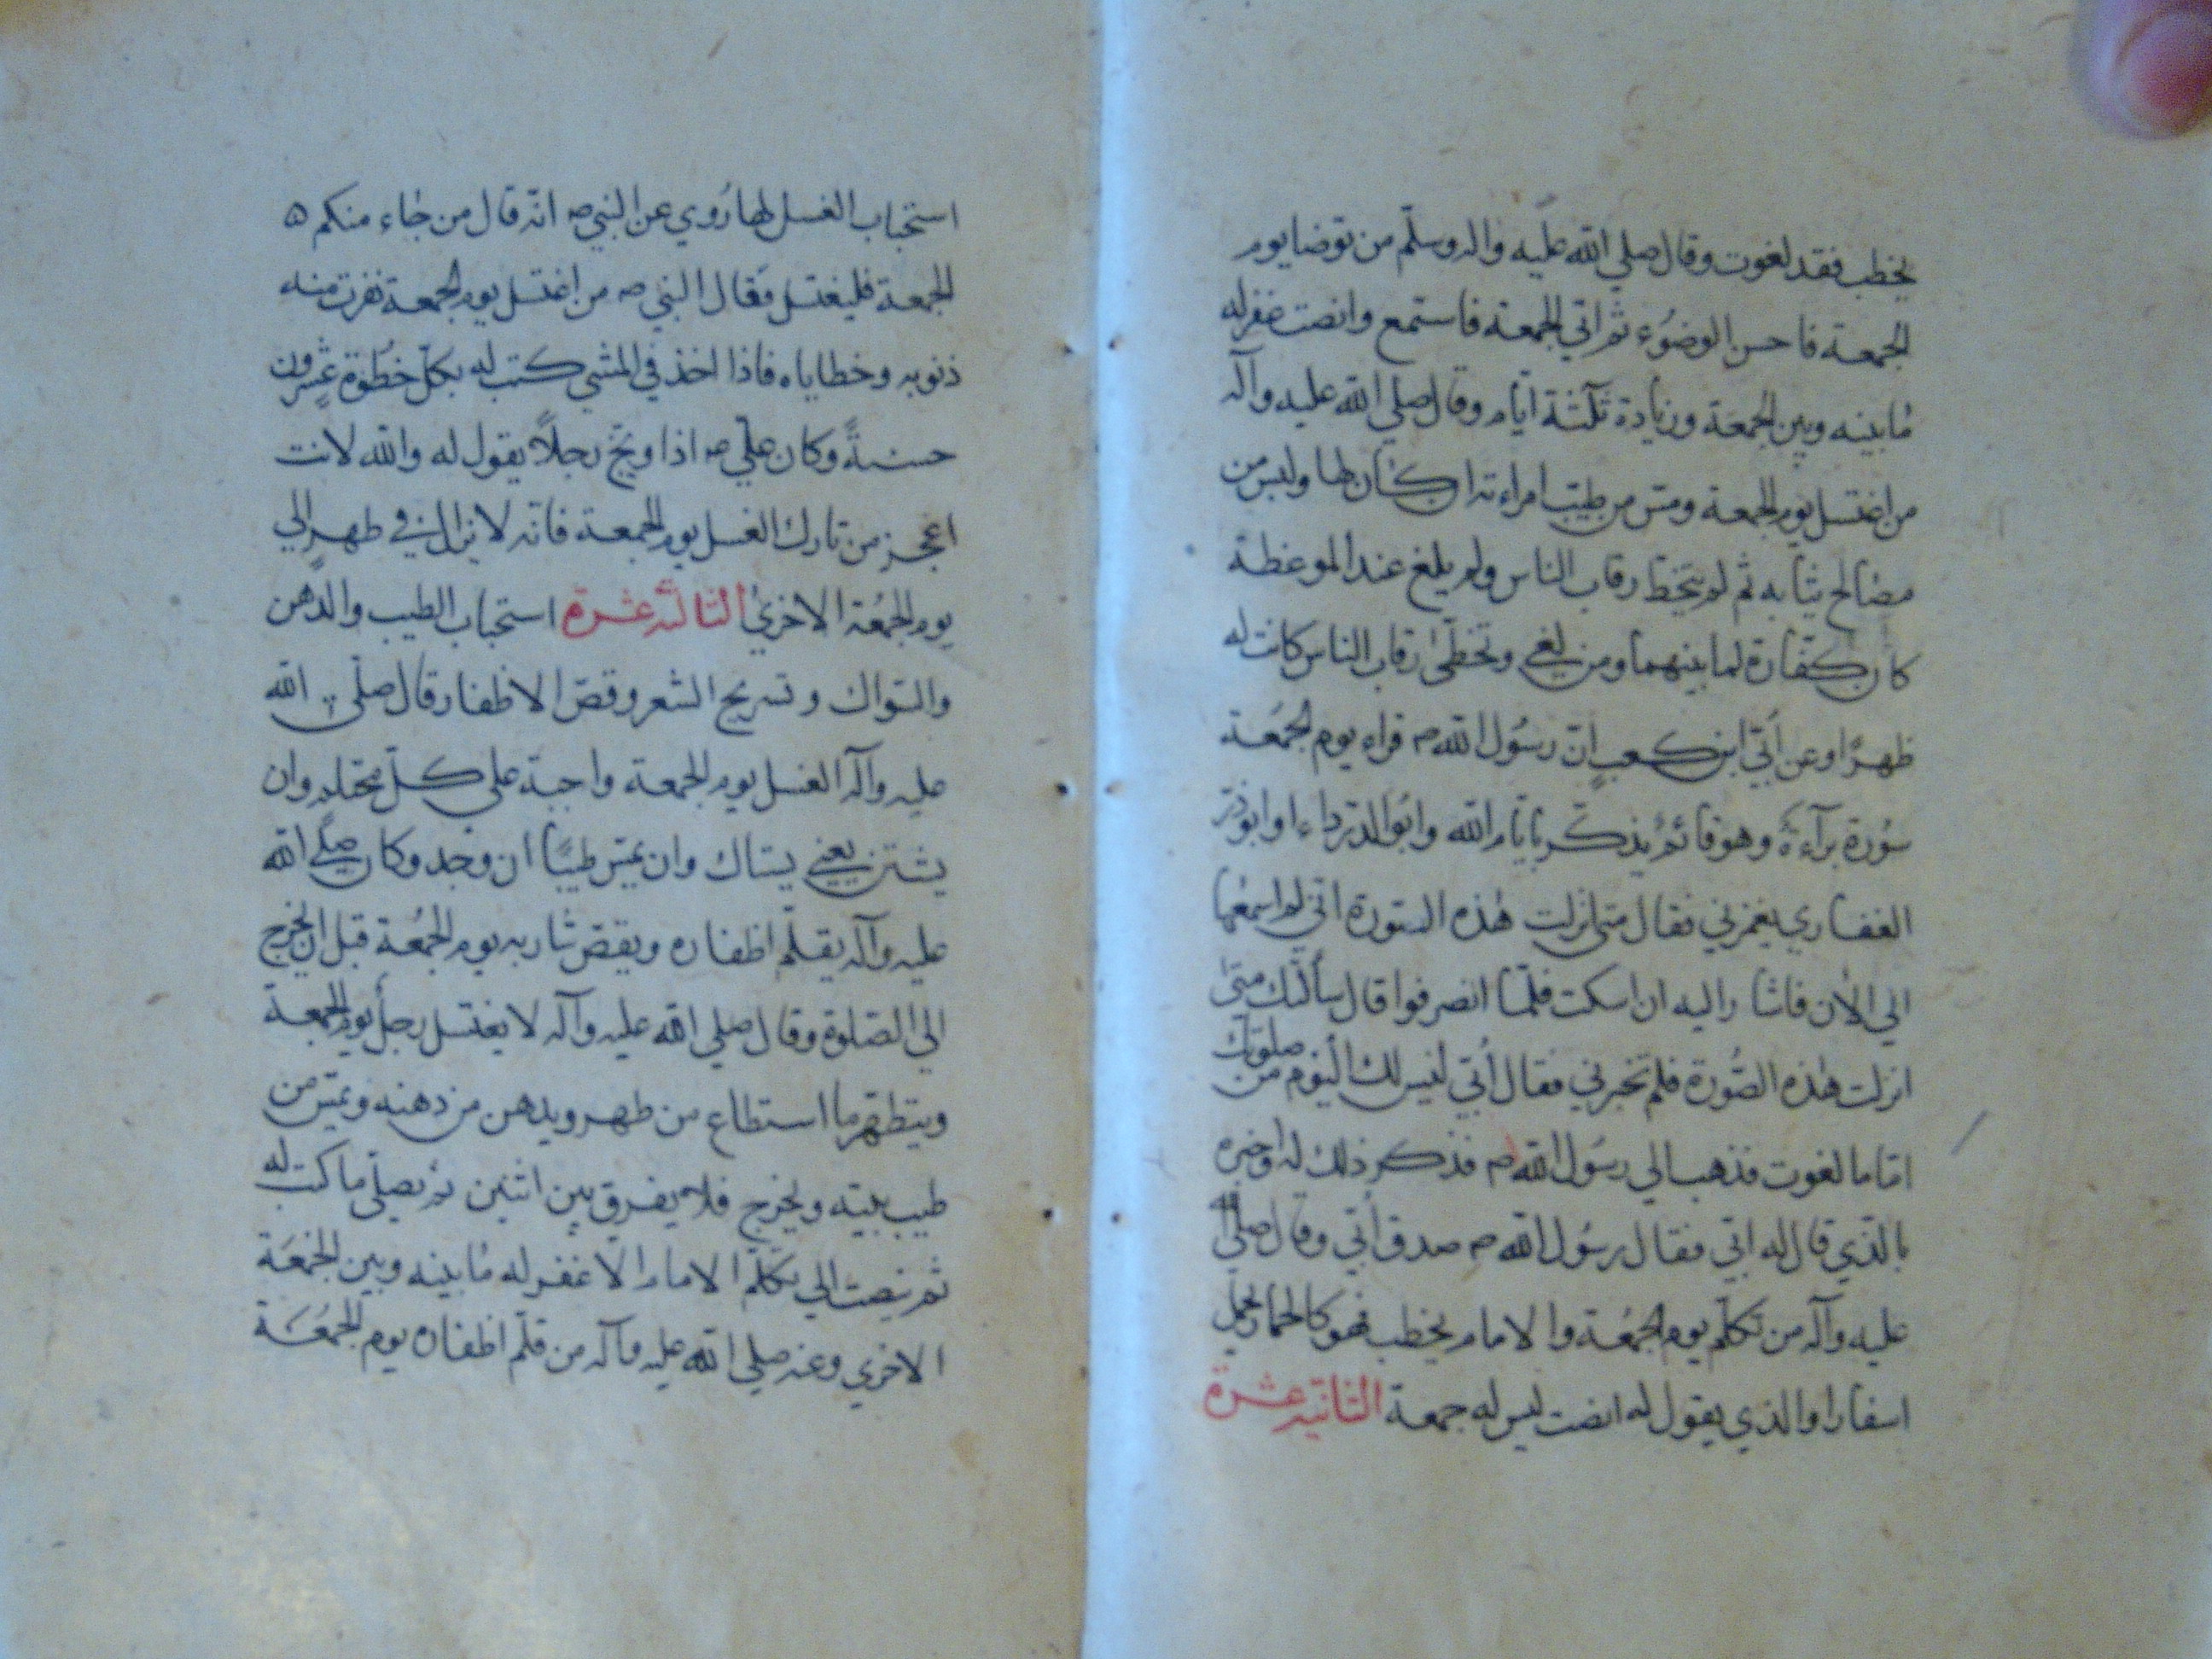 يخطب فقد لغوت وقال صلي الله عليه واله وسلّم من توضا يوم
الجمعة فاحسن الوضوء ثم اتي الجمعة فاستمع وانصت غفرله
مابينه وبين الجمعة وزيادة ثلثة ايّام وقال صلي الله عليه وآله
من اغتسل يوم الجمعة ومسّ من طيب امراءته ان كان لها ولبس من
صالح ثيابه ثم لم يتخط رقاب الناس ولم يلغ عند الموعظة
كان كفّارة لما بينهما ومن لغي وتخطّى رقاب الناس كانت له
ظهرًا وعن اُبّي ابن كعب انّ رسُول الله ص قراء يوم الجمُعة
سُورة برآءة وهو قائم يذكّر بايّام الله وابُو الدّرداء او ابو ذرّ
الغفاري يغمزني فقال متى انزلت هٰذه السّورة انّي لم اسمعها
الي الاٰن فاشار اليه ان اسكت فلمّا انصرفوا قال سألتك متىٰ
انزلت هٰذه الصُّورة فلم تخبرني فقال اُبّي ليس لك اليوم من صلوتك
امّا ما لغوت فذهب الي رسُول الله ص فذكر ذلك له واخبره
بالّذي قال له ابّي فقال رسُول الله ص صدق اُبّي وقال صلي الله
عليه وآله من تكلّم يوم الجمُعة والامام يخطب فهو كالحمار يحمل
اسفارا والذي يقول له انصت ليس له جمعة الثانيه عشرة
استحباب الغسل لها رُوي عن النبي ص انّه قال من جٰاء منكم ٥
الجمعة فليغتسل وقال النبي ص من اغتسل يوم الجمعة نفرت منه
ذنوبه وخطاياه فاذا اخذ في المشي كتب له بكلّ خُطوة عشرون
حسنةً وكان علّي ص اذا وبّخ رجلاً يقول له والله لانت
اعجز من تارك الغسل يوم الجمعة فانّه لا يزال في طهرٍ الي
يوم الجمُعة الاخريٰ الثالثه عشرة استحباب الطيب والدّهن
والسّواك وتسريح الشعر وقصّ الاظفار قال صلّى الله
عليه وآله الغسل يوم الجمعة واجبة على كلّ محتلم وان
يستنّ يعني يستاك وان يمسّ طيبًا ان وجد وكان صلي الله
عليه وآله يقلّم اظفاره ويقصّ شاربه يوم الجمُعة قبل ان يخرج
الي الصّلوة وقال صلي الله عليه وآله لا يغتسل رجل يوم الجمعة
ويتطهّر ما استطاع من طهر ويدهن من دهنه ويمسّ من
طيب بيته ويخرج فلا يفرق بين اثنين ثم يصلّي ما كتب له
ثم ينصت الي تكلّم الامام الا غفر له مابينه وبين الجمُعَة
الاخري وعنه صلي الله عليه وآله من قلّم اظفاره يوم الجمُعَة